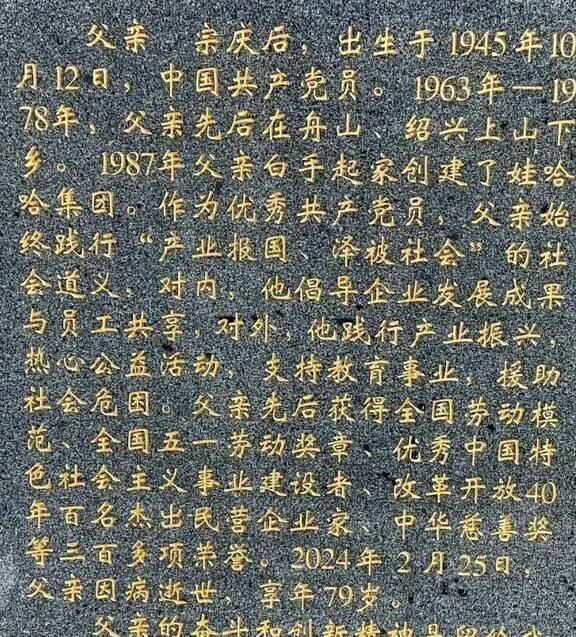 父亲 亲庆后，出生于1945年10
月12日，中国共产党员。1963年—19
78年，父亲先后在舟山、绍兴上山下
乡。1987年父亲白手起家创建了娃哈
哈集团。作为优秀共产党员，父亲始
终践行“产业报国、泽被社会”的社
会道义，对内，他倡导企业发展成果
与员工共享，对外，他践行产业振兴，
热心公益活动，支持教育事业，援助
社会危困。父亲先后获得全国劳动模
范、全国五一劳动奖章、优秀中国特
色社会主义事业建设者、改革开放40
年百名杰出民营企业家、中华慈善奖
等三百多项荣誉。2024年2月25日，
父亲因病逝世，享年79岁。
父亲的奋斗和创新精神